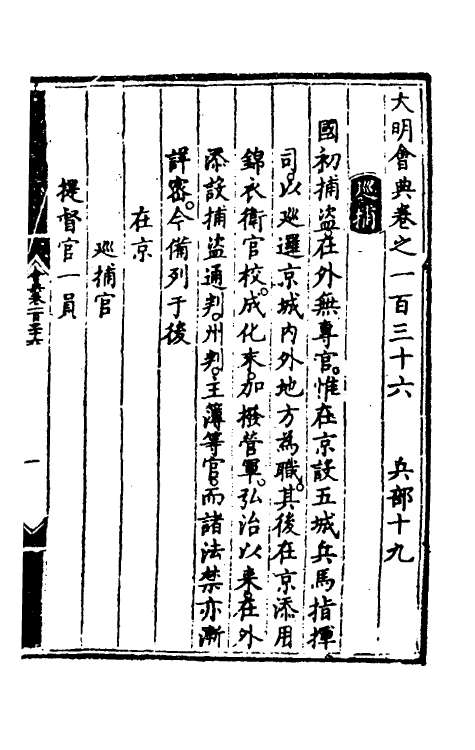 大明會典卷之一百三十六 兵部十九
巡捕
國初捕盜在外無專官。惟在京設五城兵馬指揮
司。以巡邏京城內外地方為職。其後在京添用
錦衣衛官校。成化末。加撥管軍。弘治以來。在外
添設捕盜通判。州判。主簿等官。而諸法禁亦漸
詳密。今備列于後
在京
巡捕官
提督官一員
會典卷一百三十六
一